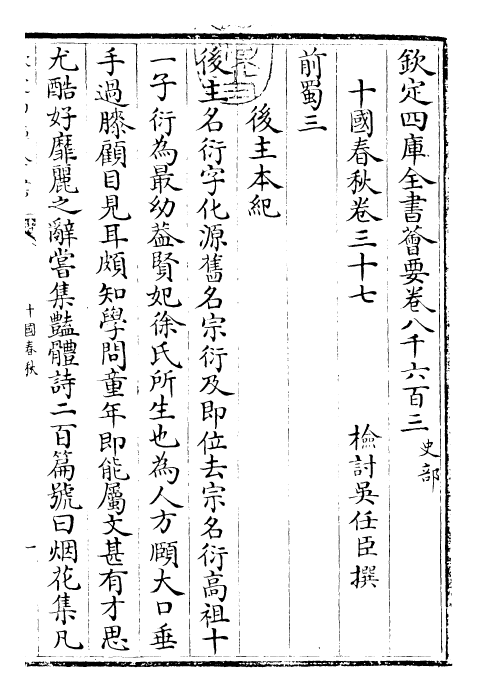 欽定四庫全書薈要卷八千六百三 史部
十國春秋卷三十七
檢討吳任臣撰
前蜀三
後主本紀
後主名衍字化源舊名宗衍及即位去宗名衍高祖十
一子衍為最幼葢賢妃徐氏所生也為人方頤大口垂
手過膝顧目見耳頗知學問童年即能屬文甚有才思
尤酷好靡麗之辭嘗集豔體詩二百篇號曰烟花集凡
十國春秋
一